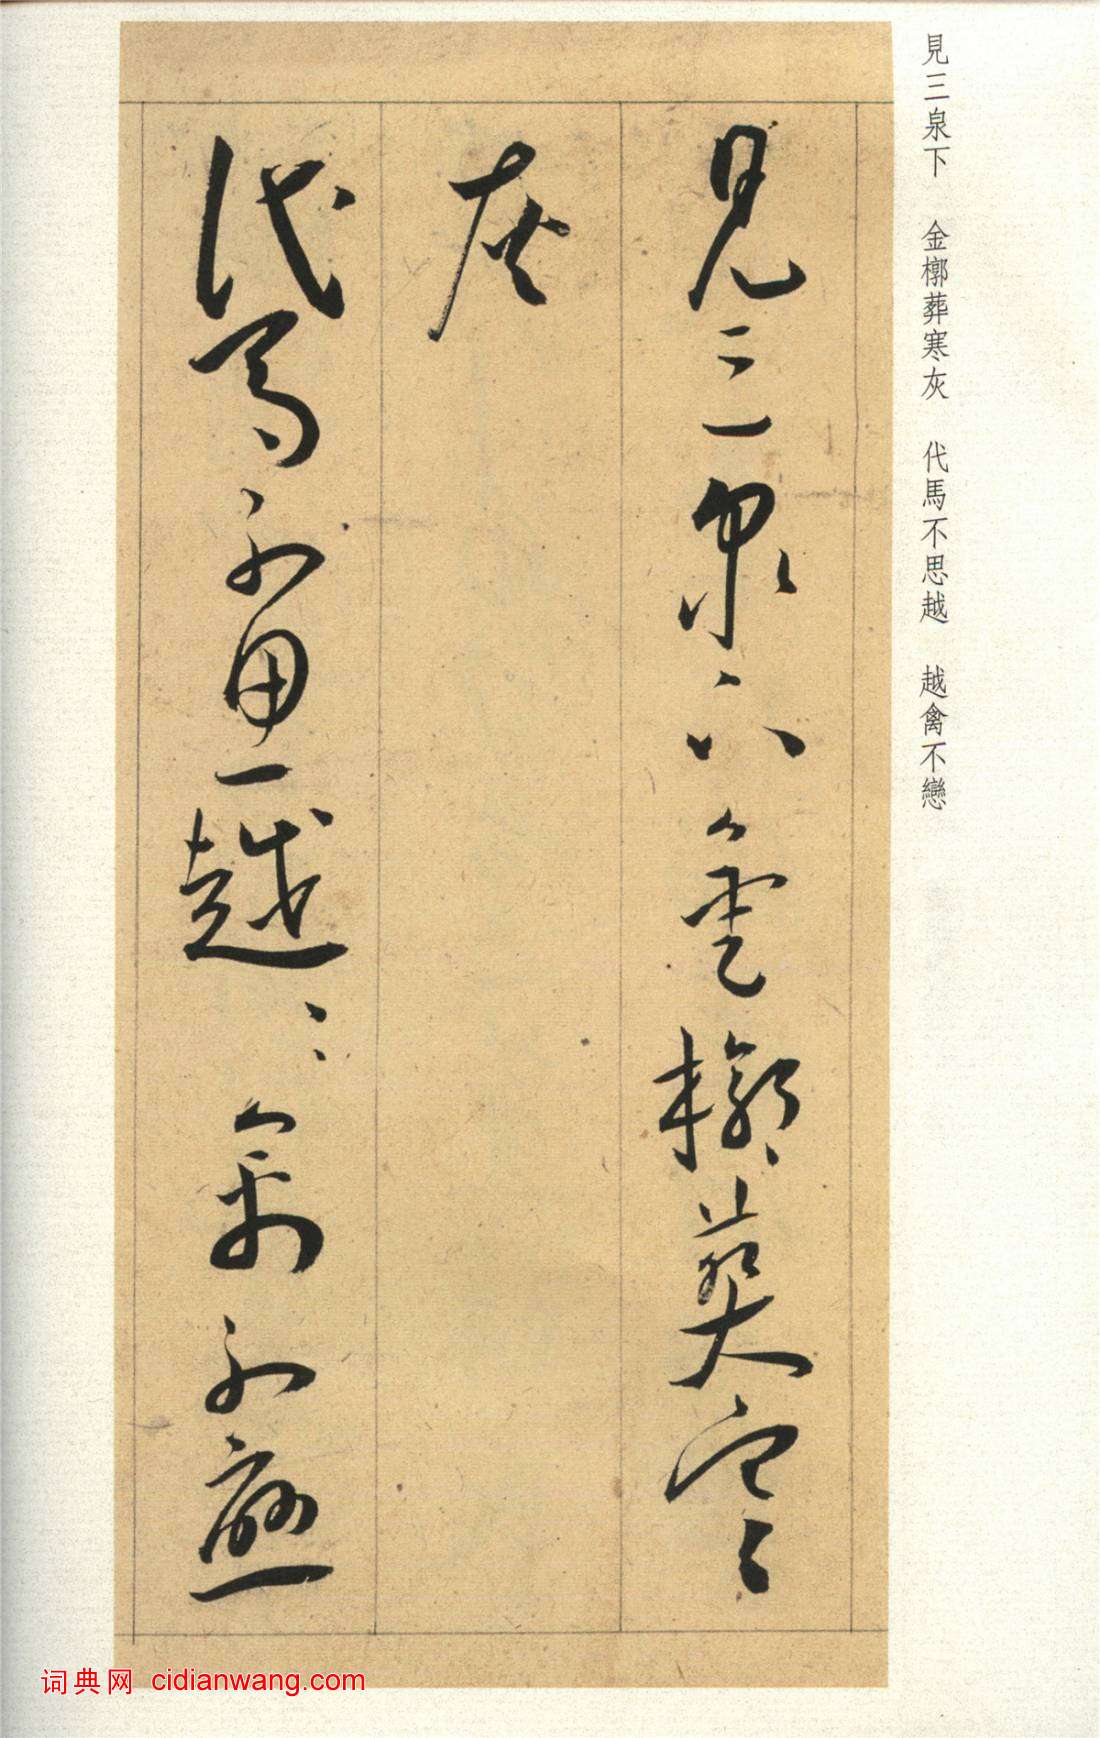 見三泉下　金槨葬寒灰　代馬不思越　越禽不戀
見三泉下金槨葬寒
灰
代馬不思越〻禽不戀
词典网 cidianwang.com